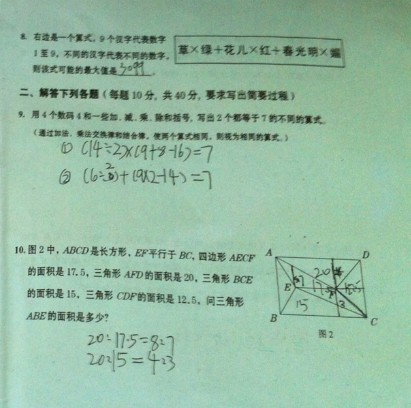 8. 右边是一个算式, 9个汉字代表数字
1至9, 不同的汉字代表不同的数字,
则该式可能的最大值是
草×绿+花儿×红+春光明×媚
二、解答下列各题 (每题 10 分, 共 40 分, 要求写出简要过程)
9. 用4个数码4和一些加、减、乘、除和括号, 写出2个都等于7的不同的算式.
(通过加法、乘法交换律和结合律, 使两个算式相同, 则视为相同的算式.)
① (14÷2)×(9+8-16)=7
10. 图2中, ABCD是长方形, EF平行于BC, 四边形AECF
的面积是17.5, 三角形AFD的面积是20, 三角形BCE
的面积是15, 三角形CDF的面积是12.5, 问三角形
ABE的面积是多少?
A
D
E
B
C
20
15
图2
20:17.5=8:7
20:15=4:3